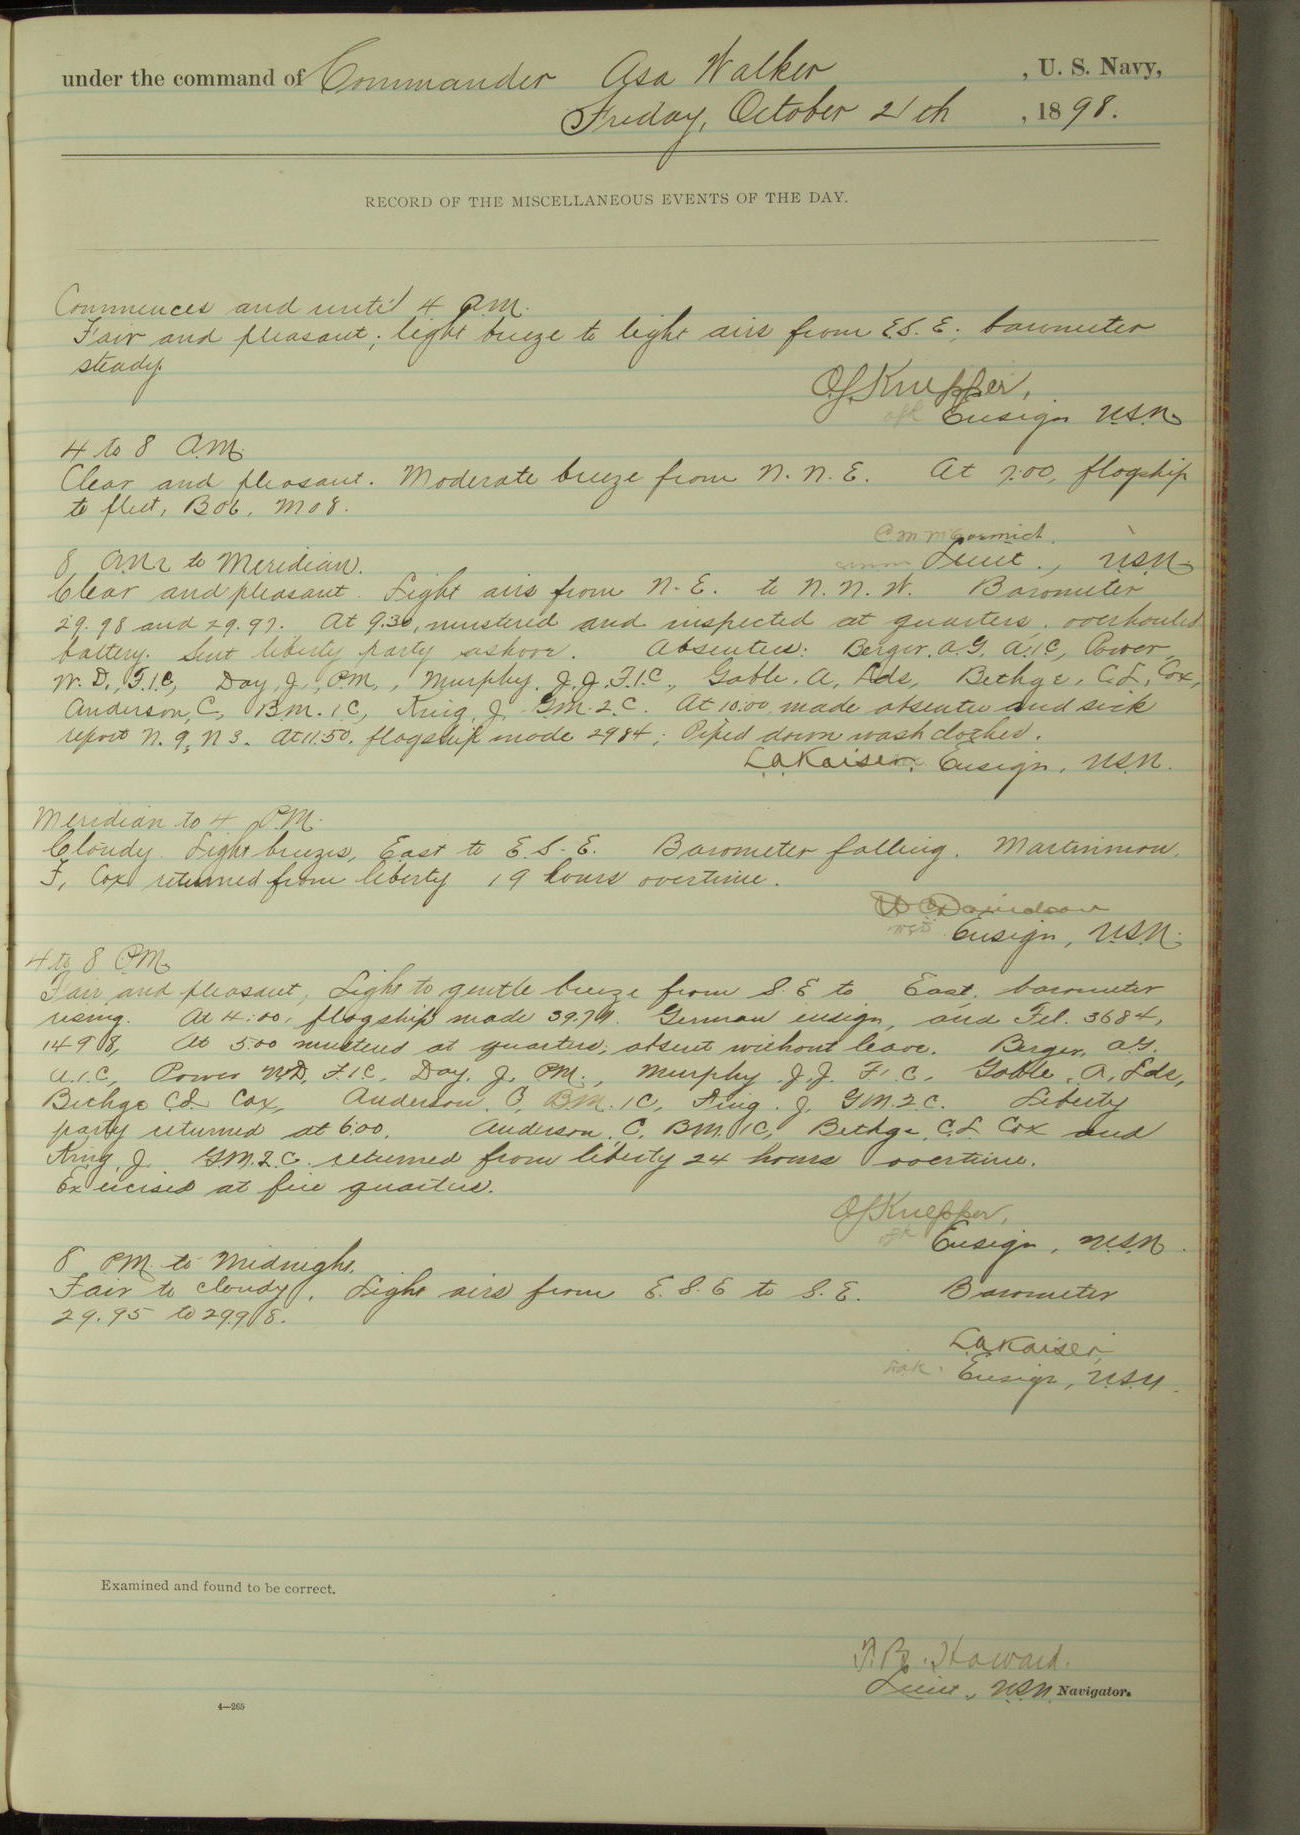 under the command of Commander Asa Walker, U. S. Navy,
Friday, October 21th, 1898.
RECORD OF THE MISCELLANEOUS EVENTS OF THE DAY.
Commences and until 4 a.m.
Fair and pleasant; light breeze to light airs from E.S.E; barometer
steady.
O.J. Knepper,
Ensign U.S.N.
4 to 8 A.M.
Clear and pleasant. Moderate breeze from N.N.E. At 7:00, flagship
to fleet, B06, M08.
C.M. McCormick.
Lieut., U.S.N.
8 A.M. to Meridian.
Clear and pleasant. Light airs from N.E. to N.N.W. Barometer
29.98 and 29.97. At 9.30, mustered and inspected at quarters, overhauled
battery. Sent liberty party ashore. Absentees: Berger, A.G, A.1C, Power,
W.D., F.1C, Day, J., P.M., Murphy, J.J., F.1.C., Gable, A, Lds, Bethge, C.L, Cox,
Anderson, C, B.M.1C, King, J, G.M.2.C. At 10:00, made absentee and sick
report N.9, N3. At 11.50. flagship made 2984; Piped down wash clothes.
L.A. Kaiser, Ensign, U.S.N.
Meridian to 4 P.M.
Cloudy. Light breezes, East to E.S.E. Barometer falling.
F, Cox returned from liberty 19 hours overtime.
W C Davidson
WCD Ensign, U.S.N.
4 to 8 P.M.
Fair and pleasant, Light to gentle breeze from S.E to East. barometer
rising. At 4:00, flagship made German ensign, and Tel. 3684,
1498, At 5:00 mustered at quarters; absent without leave. Berger, A.G.
A.1.C, Power W.D, F.1C, Day, J, P.M., Murphy J.J. F.1.C, Gable, A, Lds,
Bethge C.L. Cox, Anderson, C, B.M.1C, King, J, G.M.2C. Liberty
party returned at 6:00. Anderson, C. B.M.1C, Bethge, C.L Cox and
King, J. G.M.2.C. returned from liberty 24 hours overtime.
Exercised at fire quarters.
O.J. Knepper,
ojk Ensign, U.S.N.
8 P.M. to Midnight.
Fair to cloudy. Light airs from E.S.E to S.E. Barometer
29.95 to 29.98.
L.A. Kaiser,
L.A.K. Ensign, U.S.N.
Examined and found to be correct.
T.B. Howard.
Lieut., U.S.N. Navigator.
4—265